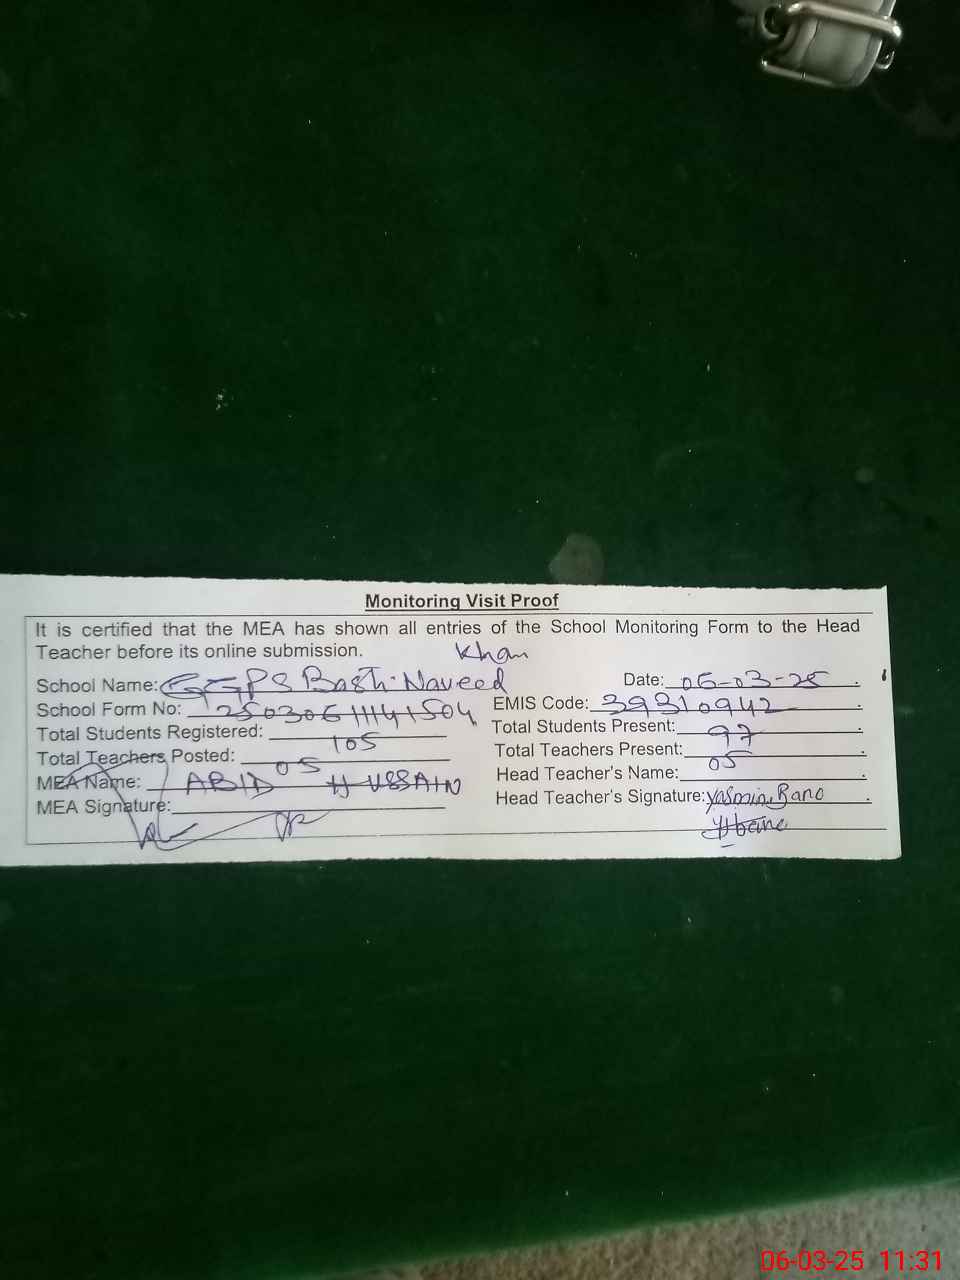 Monitoring Visit Proof
It is certified that the MEA has shown all entries of the School Monitoring Form to the Head
Teacher before its online submission.
Khan
School Name: GGPS Basti Naveed Date: 06-03-25
School Form No: 25030611141504 EMIS Code: 39310942
Total Students Registered: 105 Total Students Present: 97
Total Teachers Posted: 05 Total Teachers Present: 05
MEA Name: ABID HUSSAIN Head Teacher's Name:
MEA Signature: Head Teacher's Signature: Yasmin Bano
06-03-25 11:31